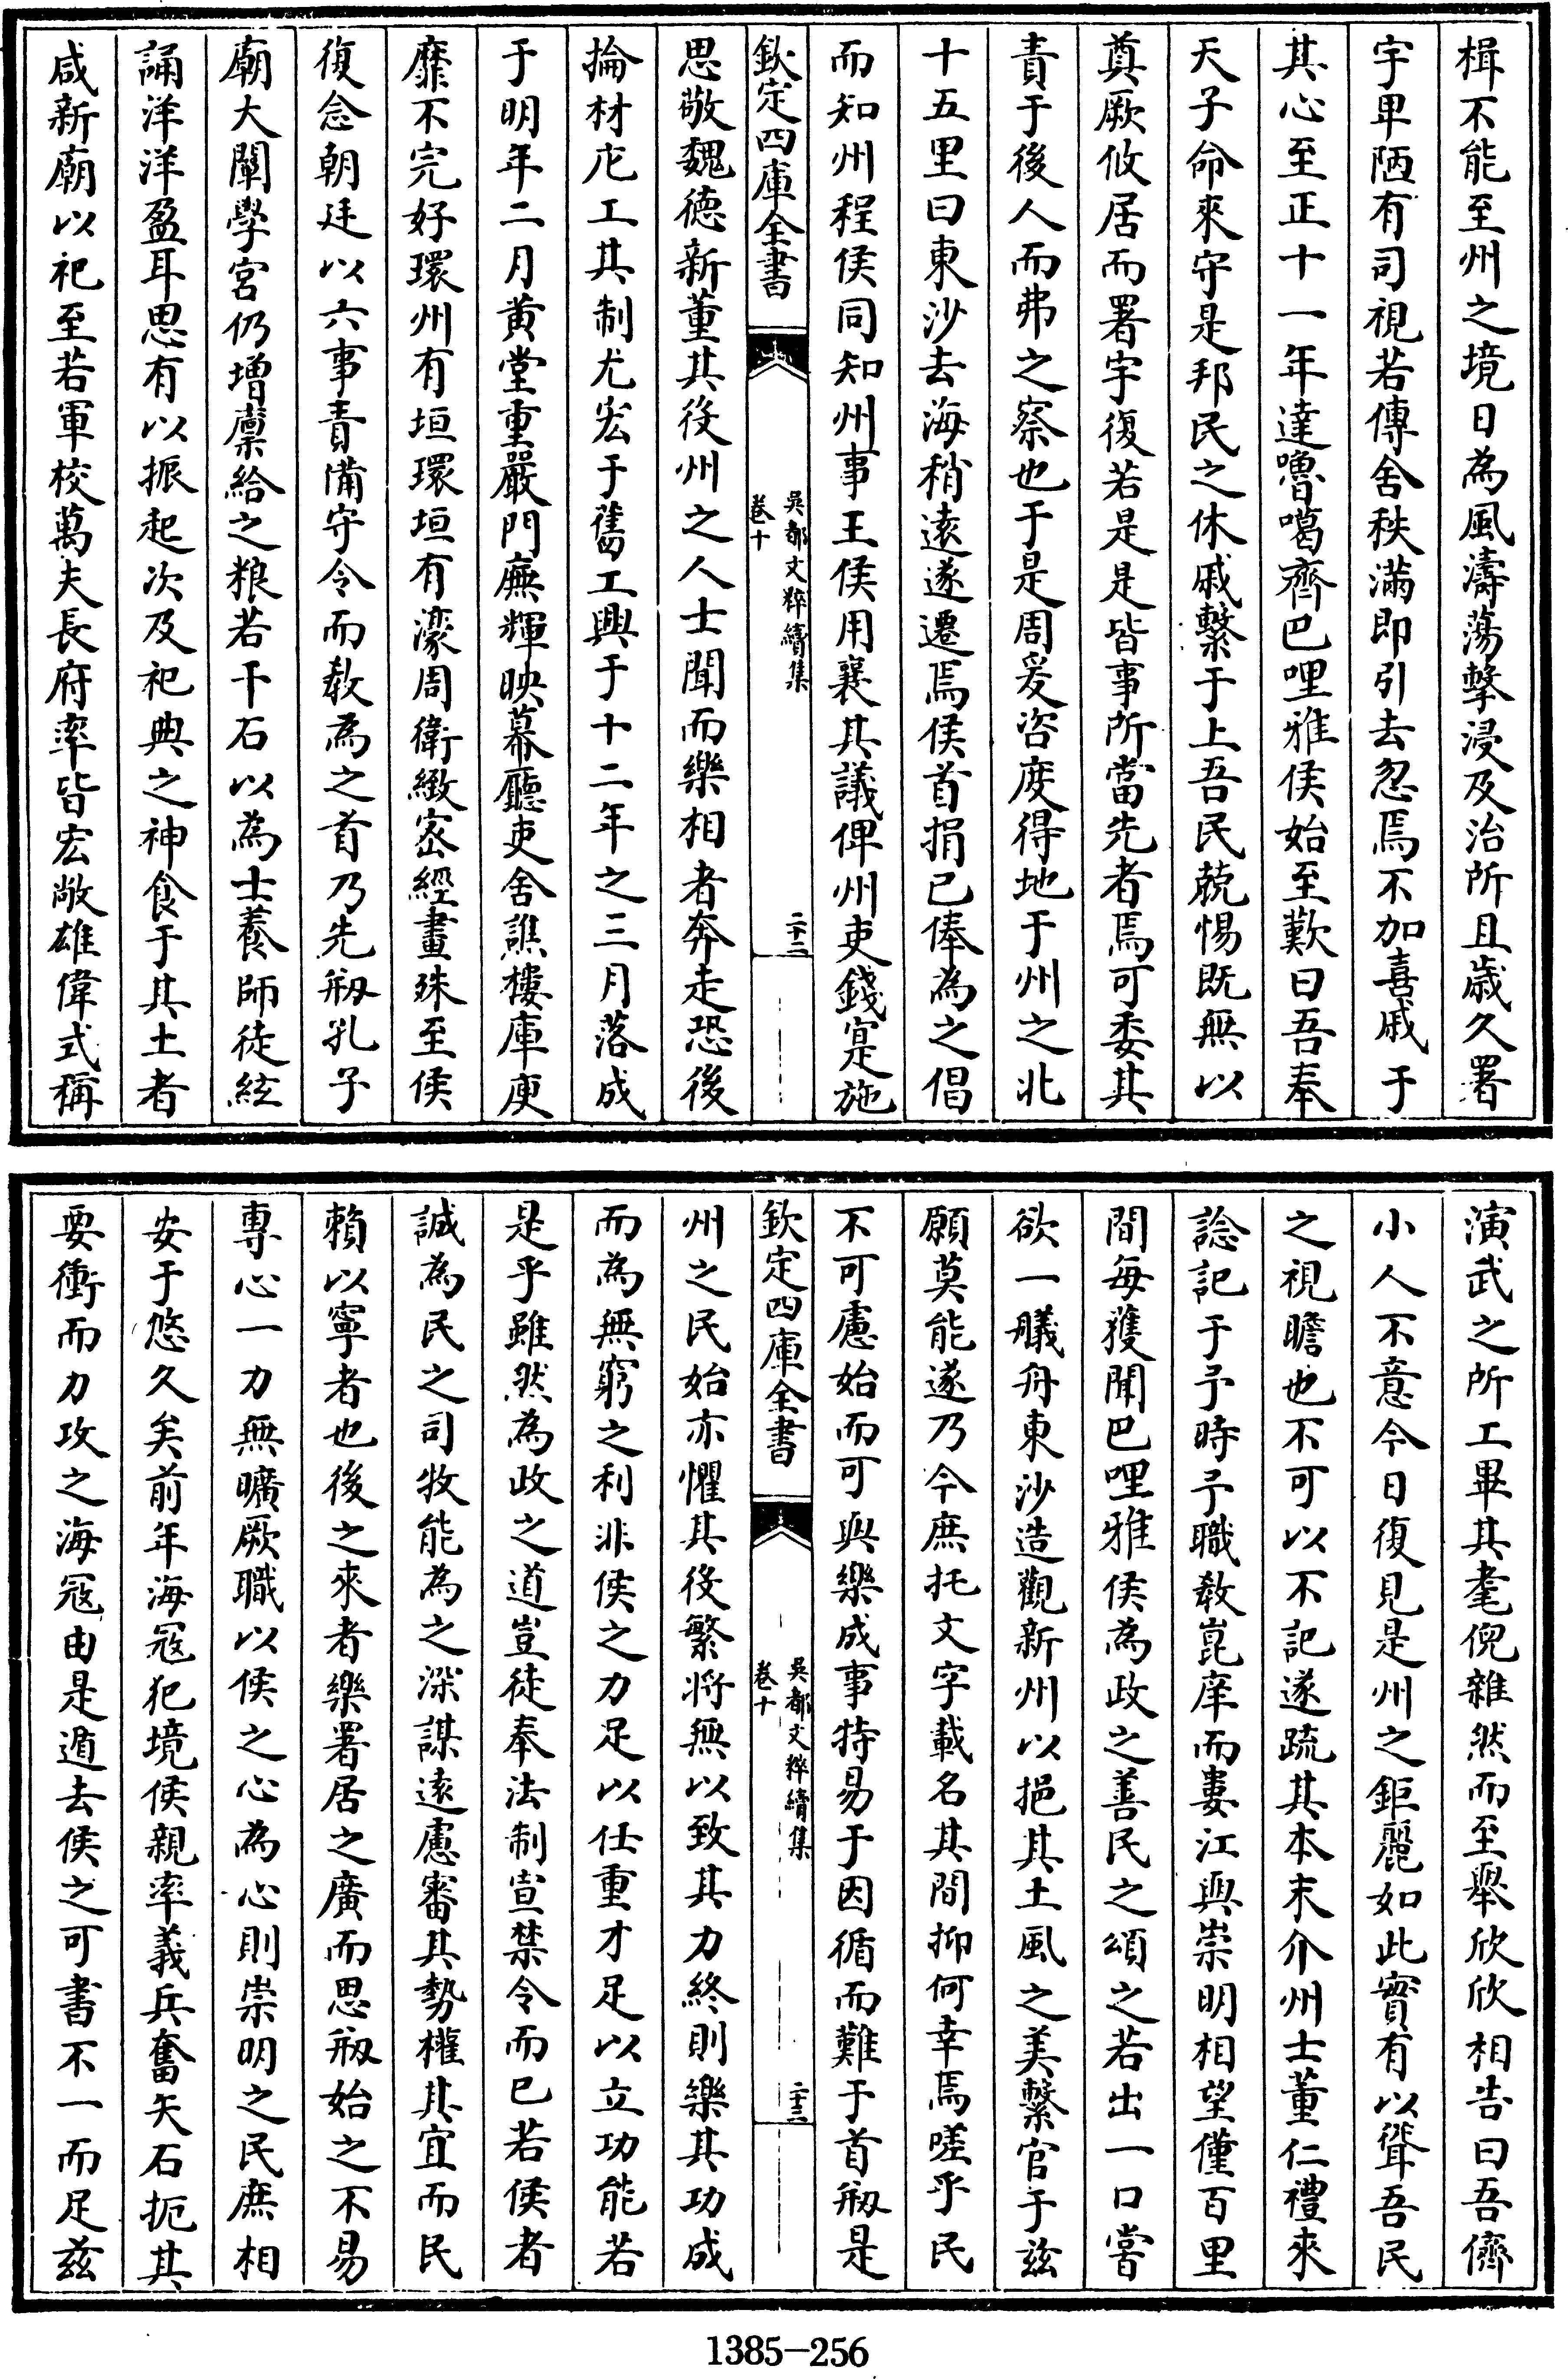 楫不能至州之境日為風濤蕩擊浸及治所且歳久署
宇卑陋有司視若傳舍秩滿即引去忽焉不加喜戚于
其心至正十一年達嚕噶齊巴哩雅侯始至歎曰吾奉
天子命來守是邦民之休戚繫于上吾民兢惕既無以
奠厥攸居而署宇復若是是皆事所當先者焉可委其
責于後人而弗之察也于是周爰咨度得地于州之北
十五里曰東沙去海稍逺遂遷焉侯首捐己俸為之倡
而知州程侯同知州事王侯用襄其議俾州吏錢寔施
欽定四庫全書
吳都文粹續集
卷十
二十二
思敬魏德新董其役州之人士聞而樂相者奔走恐後
掄材庀工其制尤宏于舊工興于十二年之三月落成
于明年二月黄堂重嚴門廡輝映幕廳吏舍譙樓庫庾
靡不完好環州有垣環垣有濠周衛緻宻經畫殊至侯
復念朝廷以六事責備守令而敎為之首乃先剏孔子
廟大闡學宫仍增廪給之粮若干石以為士養師徒絃
誦洋洋盈耳思有以振起次及祀典之神食于其土者
咸新廟以祀至若軍校萬夫長府率皆宏敞雄偉式稱
演武之所工畢其耄倪雜然而至舉欣欣相告曰吾儕
小人不意今日復見是州之鉅麗如此實有以聳吾民
之視瞻也不可以不記遂疏其本末介州士董仁禮來
諗記于予時予職敎崑庠而婁江與崇明相望僅百里
間每獲聞巴哩雅侯為政之善民之頌之若出一口嘗
欲一艤舟東沙造觀新州以挹其土風之美繫官于兹
願莫能遂乃今庶托文字載名其間抑何幸焉嗟乎民
不可慮始而可與樂成事特易于因循而難于首剏是
欽定四庫全書
吳都文粹續集
卷十
二十三
州之民始亦懼其役繁將無以致其力終則樂其功成
而為無窮之利非侯之力足以任重才足以立功能若
是乎雖然為政之道豈徒奉法制宣禁令而已若侯者
誠為民之司牧能為之深謀逺慮審其勢權其宜而民
賴以寧者也後之來者樂署居之廣而思剏始之不易
專心一力無曠厥職以侯之心為心則崇明之民庶相
安于悠久矣前年海冦犯境侯親率義兵奮矢石扼其
要衝而力攻之海冦由是遁去侯之可書不一而足兹
1385-256